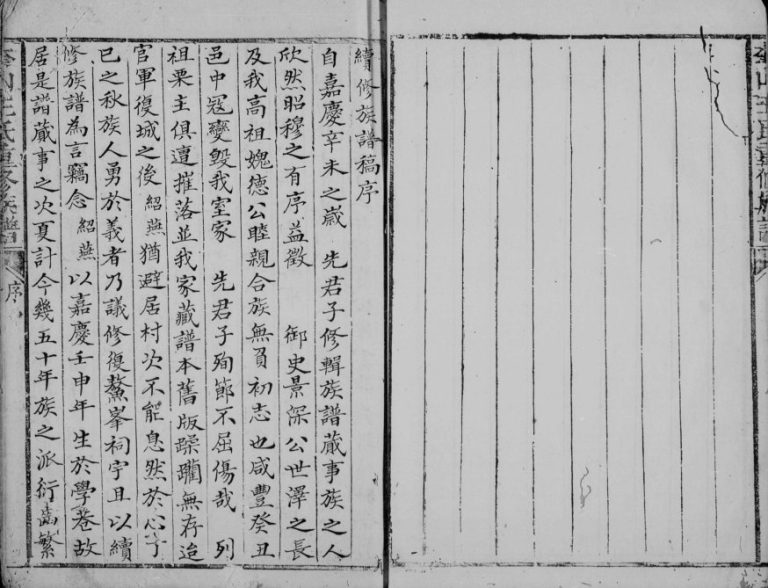 續修族譜稿序
自嘉慶辛未之歲　先君子修輯族譜蕆事族之人
欣然昭穆之有序益徵　　御史景深公世澤之長
及我高祖媿德公睦親合族無負初志也咸豐癸丑
邑中寇變毀我室家　先君子殉節不屈傷哉　列
祖栗主俱遭摧落並我家藏譜本舊版蹂躪無存迨
官軍復城之後紹燕猶避居村次不能息然於心丁
巳之秋族人勇於義者乃議修復鰲峯祠宇且以續
修族譜為言竊念紹燕以嘉慶壬申年生於學巷故
居是譜蕆事之次夏計今幾五十年族之派衍齒繁
氏重修族譜
序